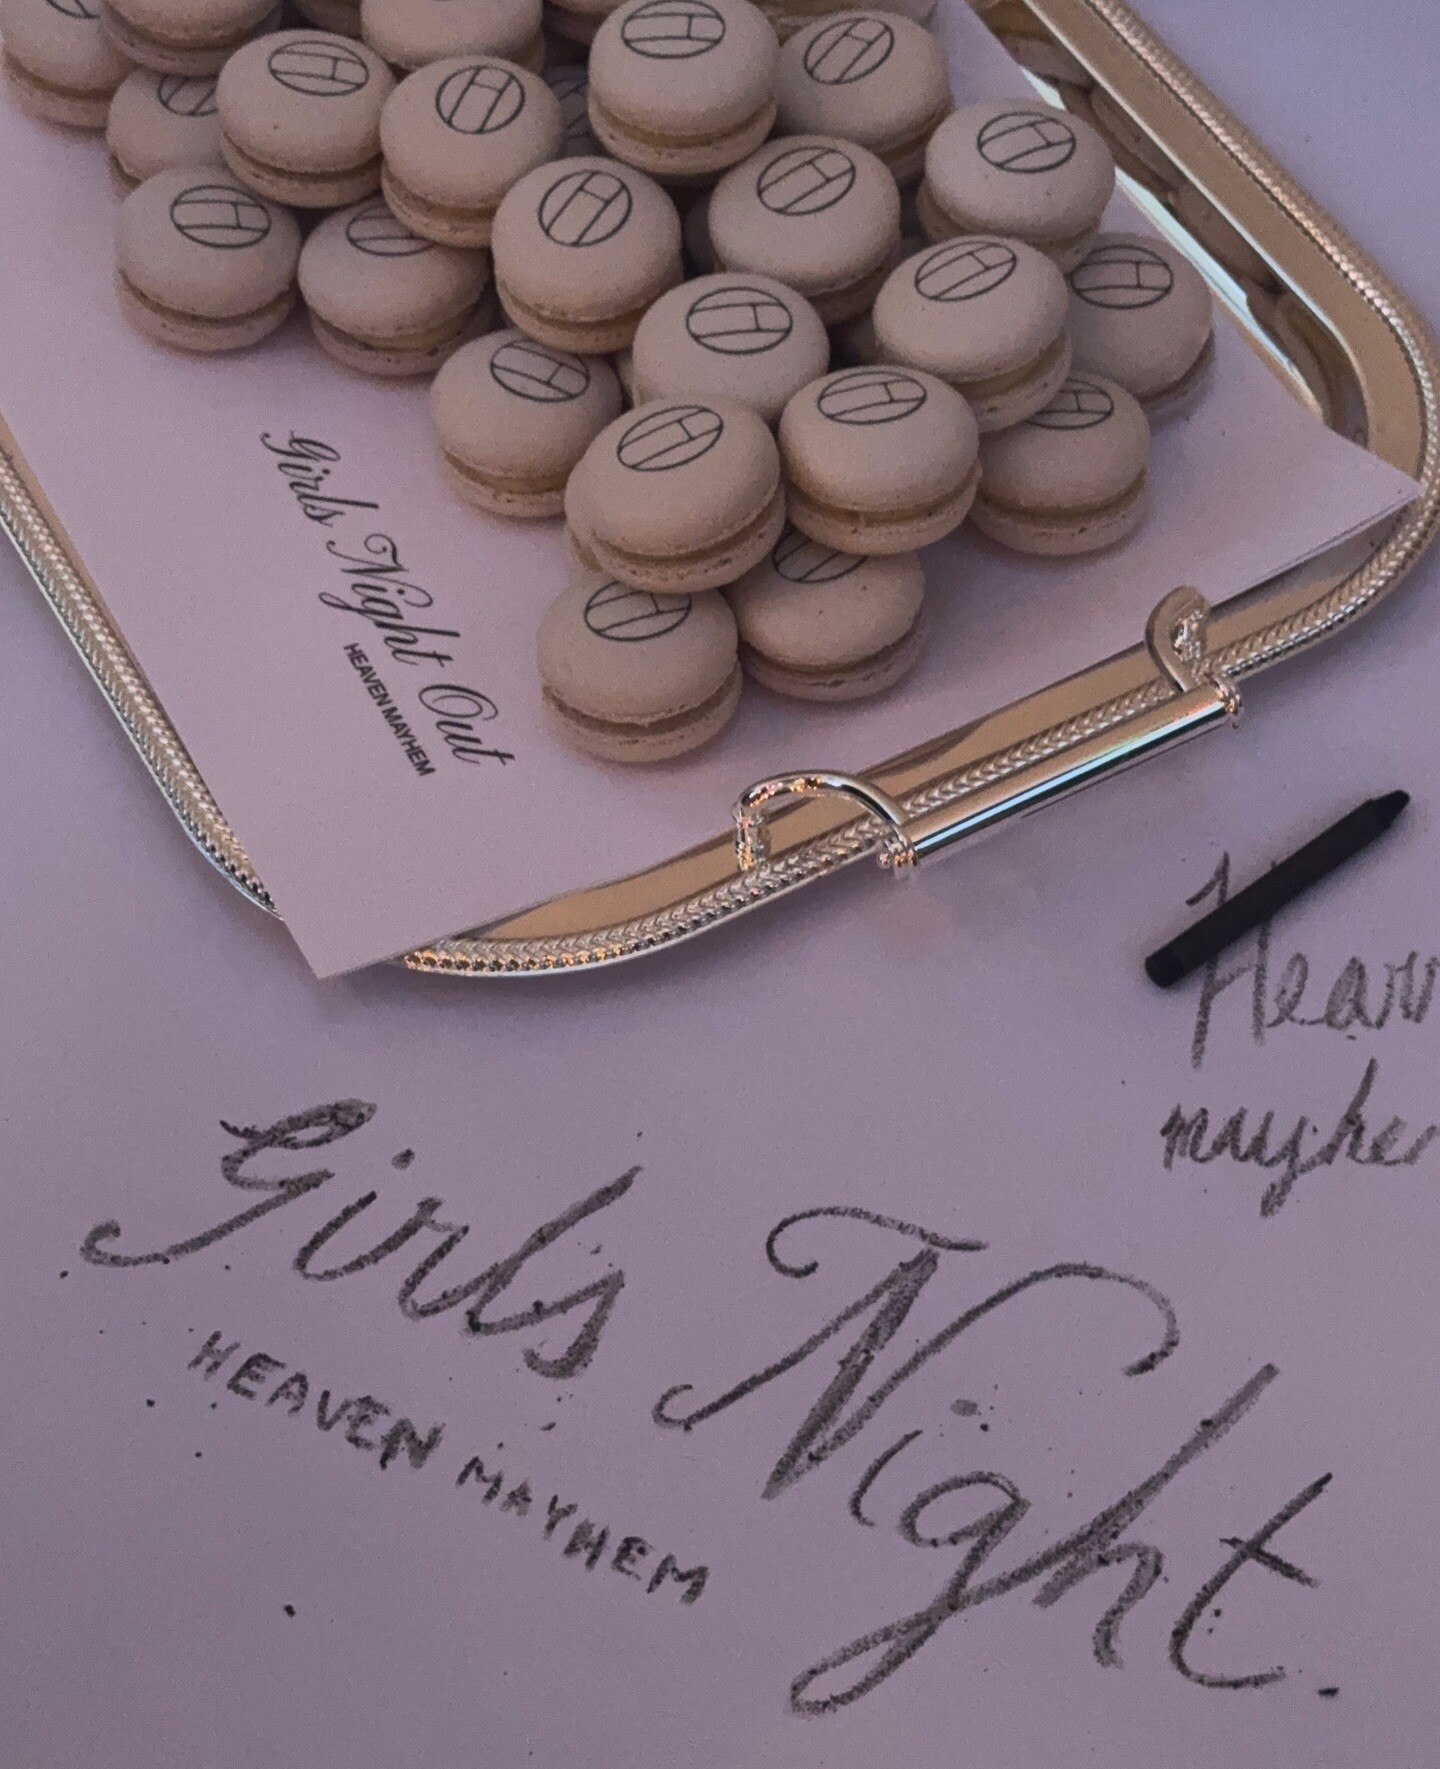 Girls Night Out
HEAVEN MAYHEM
mayhe
Girls Night.
HEAVEN MAYHEM